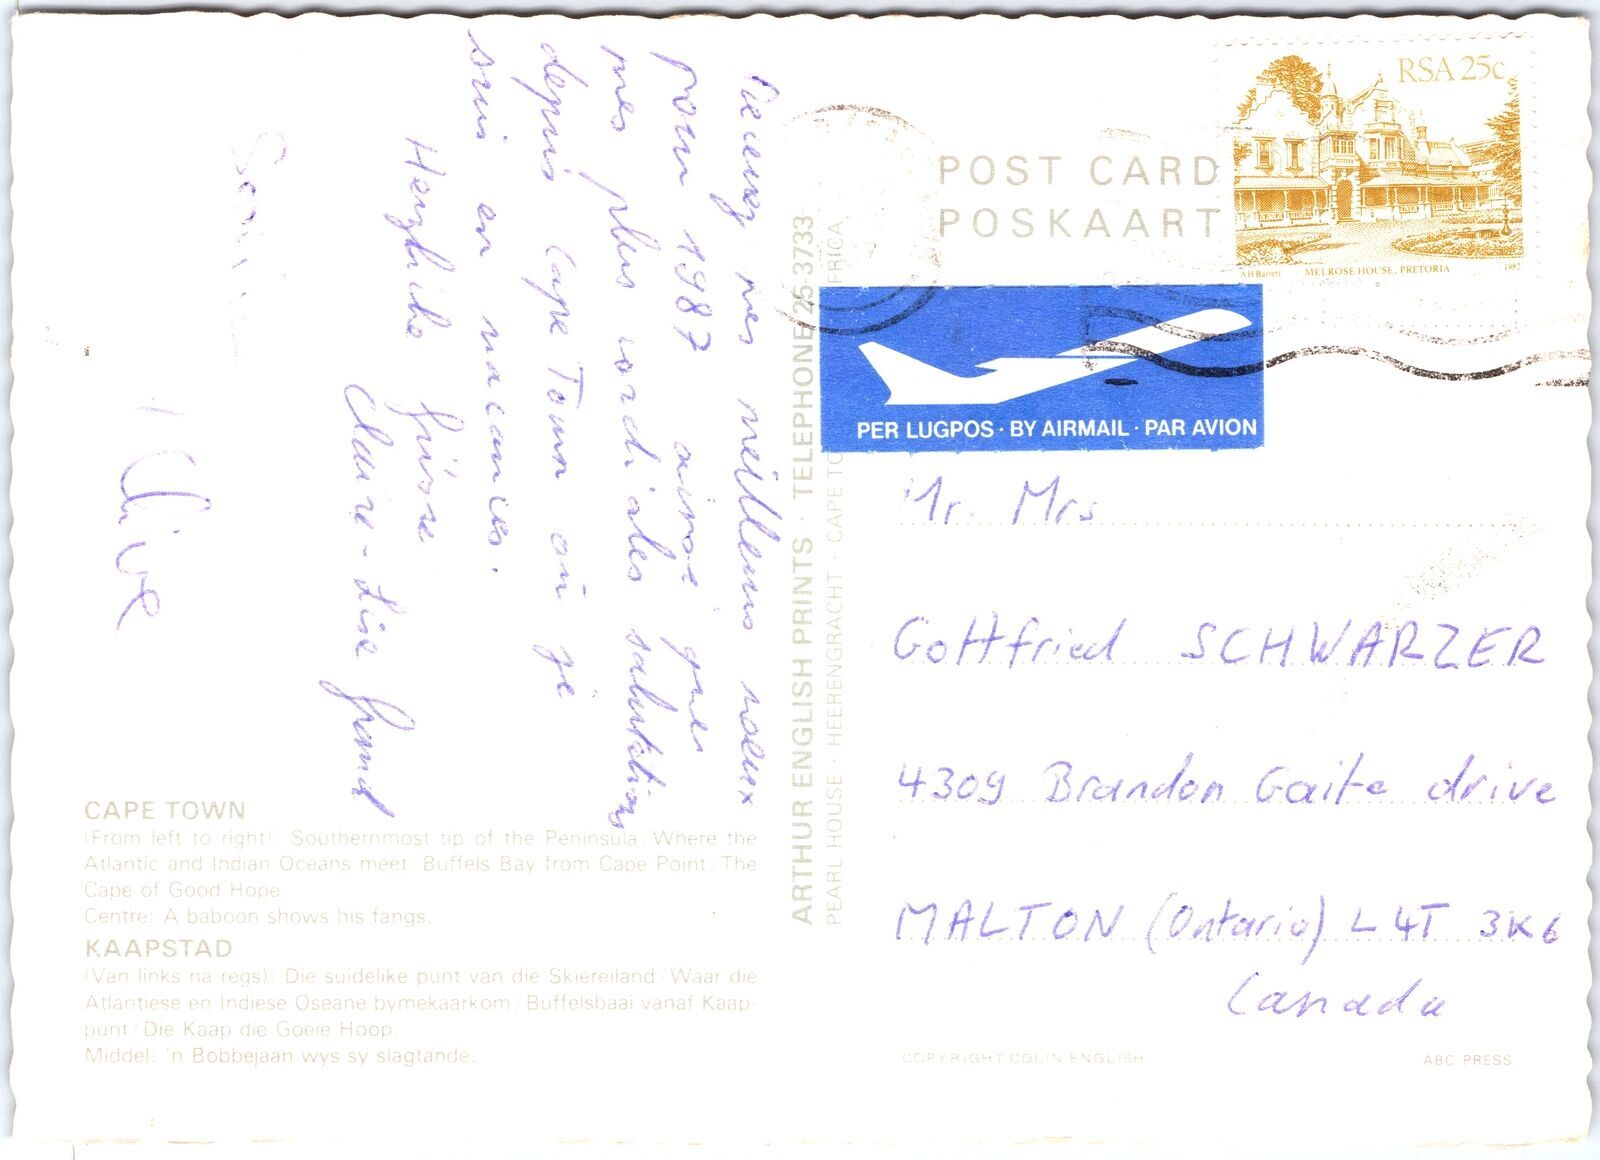 Recevez mes meilleurs voeux
pour 1987 ainsi que
mes plus cordiales salutations
depuis Cape Town où je
suis en vacances.
Herzliche Grüsse
Claire-Lise Grand
+ Clive
CAPE TOWN
(From left to right): Southernmost tip of the Peninsula/Where the
Atlantic and Indian Oceans meet/Buffels Bay from Cape Point/The
Cape of Good Hope.
Centre: A baboon shows his fangs.
KAAPSTAD
(Van links na regs): Die suidelike punt van die Skiereiland/Waar die
Atlantiese en Indiese Oseane bymekaarkom/Buffelsbaai vanaf Kaap-
punt/Die Kaap die Goeie Hoop.
Middel: 'n Bobbejaan wys sy slagtande.
ARTHUR ENGLISH PRINTS · TELEPHONE 25-3733
PEARL HOUSE · HEERENGRACHT · CAPE TO FRICA
POST CARD
POSKAART
RSA 25c
A H Barrett MELROSE HOUSE, PRETORIA 1982
PER LUGPOS · BY AIRMAIL · PAR AVION
Mr. Mrs
Gottfried SCHWARZER
4309 Brandon Gaite drive
MALTON (Ontario) L4T 3K6
Canada
COPYRIGHT COLIN ENGLISH
ABC PRESS